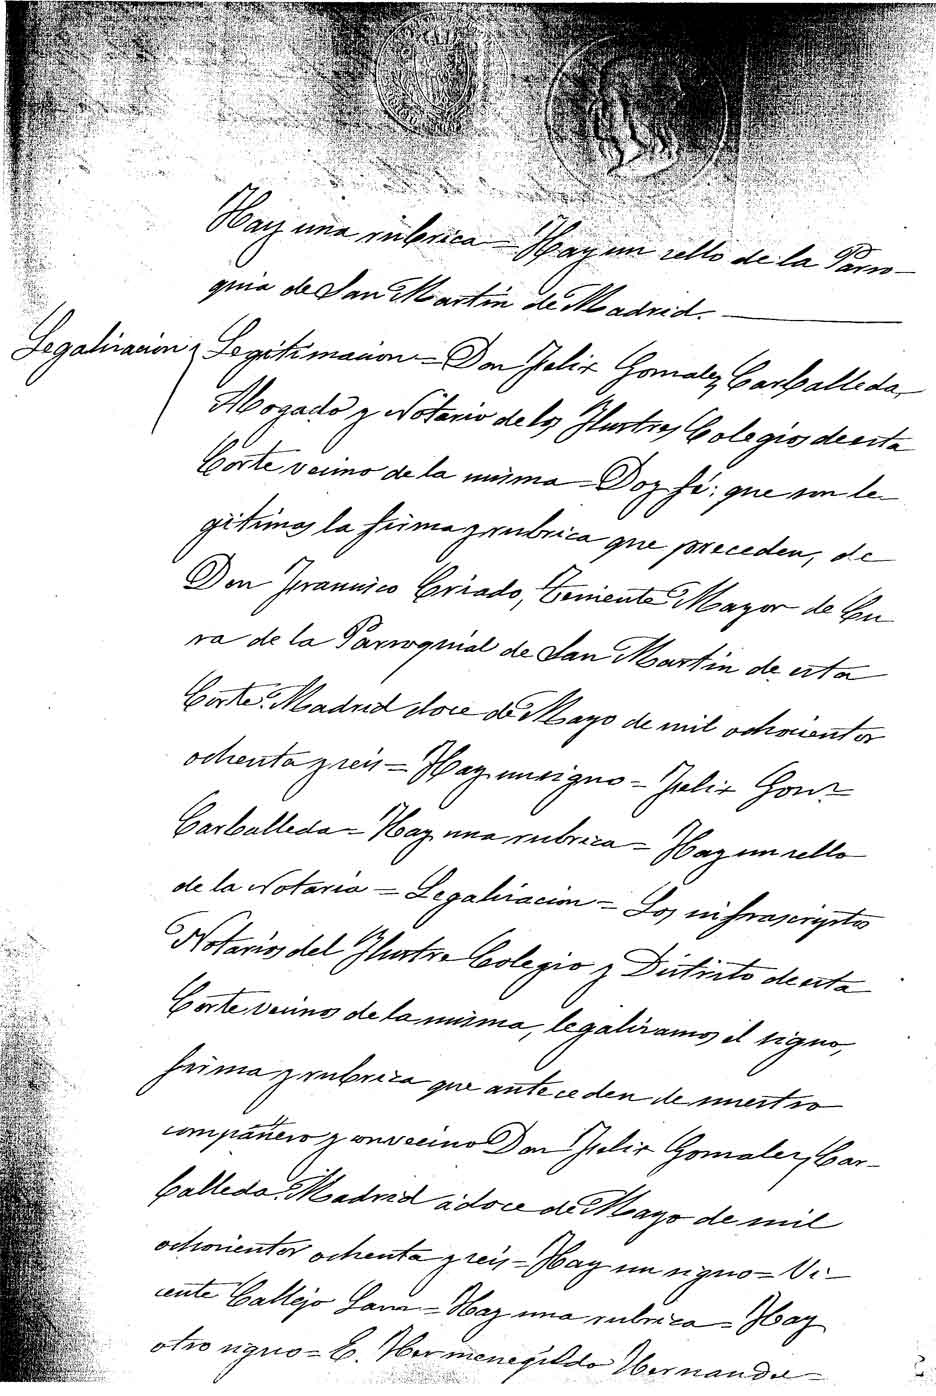 Hay una rubrica = Hay un sello de la Parro-
quia de San Martin de Madrid.
Legalizacion
Legitimacion = Don Felix Gonzalez Carballeda,
Abogado y Notario de los Ilustres Colegios de esta
Corte vecino de la misma = Doy fé: que son le-
gitimas la firma y rubrica que preceden, de
Don Francisco Criado, Teniente Mayor de Cu
ra de la Parroquial de San Martin de esta
Corte. Madrid doce de Mayo de mil ochocientos
ochenta y seis = Hay un signo = Felix Gonz.
Carballeda = Hay una rubrica = Hay un sello
de la Notaria = Legalizacion = Los infrascriptos
Notarios del Ilustre Colegio y Distrito de esta
Corte vecinos de la misma, legalizamos el signo,
firma y rubrica que anteceden de nuestro
compañero y convecino Don Felix Gonzalez Car-
balleda. Madrid á doce de Mayo de mil
ochocientos ochenta y seis = Hay un signo = Vi-
cente Callejo Sanz = Hay una rubrica = Hay
otro signo = E. Hermenegildo Hernandez =